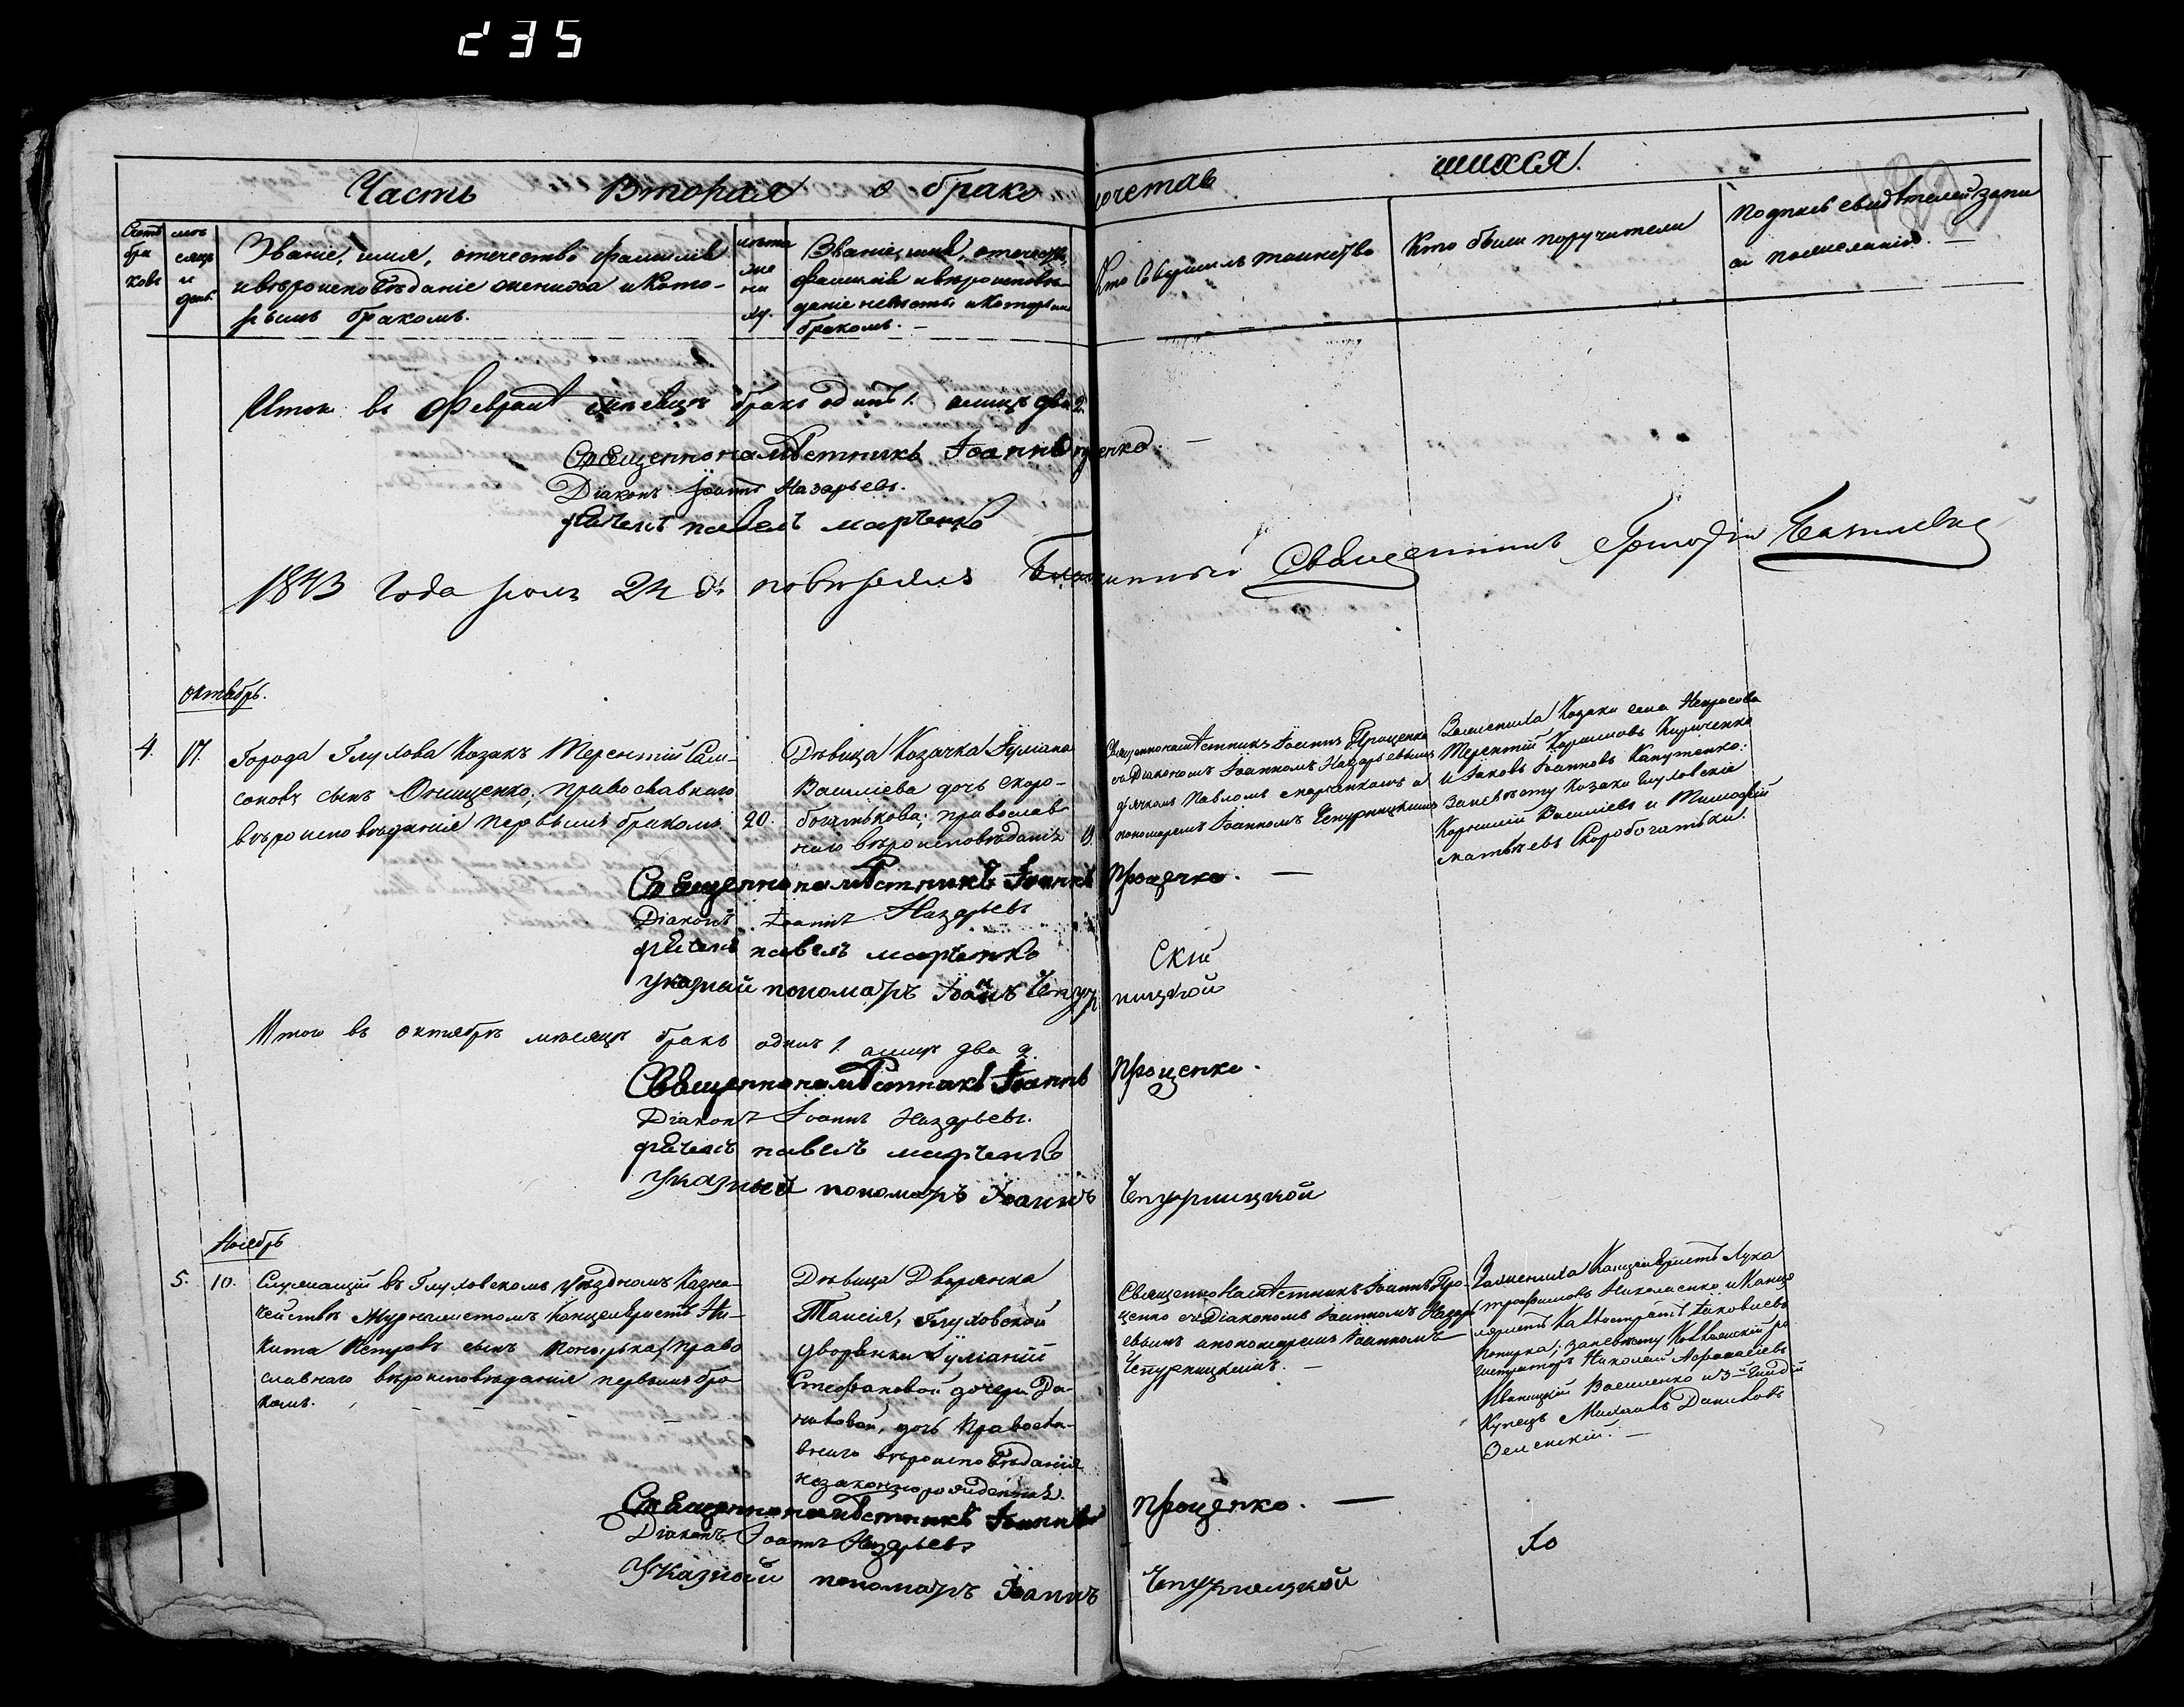 235
Часть Вторая о брако сочетав шихся.
Счетъ бра ковъ
мѣсяцъ и день
Званіе, имя, отечество фамилія
и вѣроисповѣданіе жениха и кото-
рымъ бракомъ.
лѣта же ни ху.
Званіе, имя, отечество,
фамилія и вѣроисповѣ-
даніе невѣсты и которымъ
бракомъ. —
Кто Совершилъ таинство
Кто были поручители
Подпись свидѣтелей записи
по желанію. —
Итого въ Февралѣ мѣсяцѣ бракъ одинъ 1. лицъ два 2.
Священнонамѣстникъ Іоаннъ Проценко. —
Діаконъ Іоаннъ Назарьевъ.
Дьячекъ павелъ марченко
1843 Года 24 д. повѣрялъ Благочинный Священникъ
октябрь.
4.
17.
Города Глухова Козакъ Терентій Сам-
соновъ сынъ Онищенко, православнаго
вѣроисповѣданія первымъ бракомъ
20.
Дѣвица Козачка Іуліана
Василіева дочь Скоро-
богатькова; православ
наго вѣроисповѣданія
Священнонамѣстникъ Іоаннъ Проценко
съ Діакономъ Іоанномъ Назарьевымъ
дьячкомъ Павломъ марченкомъ и
пономаремъ Іоанномъ Чепурницкимъ
За жениха Козаки села Некрасова
Терентій Кириченко
и Іаковъ Іоанновъ
За невѣсту Козаки глуховскіе
Корнилій Василіевъ и Тимофей
матвѣевъ Скоробогатьки.
Священнонамѣстникъ Іоаннъ Проценко. —
Діаконъ Іоаннъ Назарьевъ
Дьячекъ павелъ марченко
Указный пономарь Іоанъ Чепурницкой
Скій
Итого въ октябрѣ мѣсяцѣ бракъ одинъ 1. лицъ два 2.
Священнонамѣстникъ Іоаннъ Проценко.
Діаконъ Іоаннъ Назарьевъ.
Дьячекъ павелъ марченко
Указный пономарь Іоаннъ Чепурницкой
Ноябрь
5.
10.
Служащій въ Глуховскомъ уѣздномъ Казна-
чействѣ Журналистомъ Канцеляристъ Ни-
кита Петровъ сынъ право
славнаго вѣроисповѣданія первымъ бра-
комъ.
Дѣвица Дворянка
Таисія, Глуховской
дворянки Іуліаніи
Стефановой дочери Да-
ниловой, дочь Правосла-
внаго вѣроисповѣданія
незаконнорожденная.
Священно Намѣстникъ Іоаннъ Про-
ценко съ Діакономъ Іоанномъ Назарь
евымъ и пономаремъ Іоанномъ
Чепурницкимъ. —
За жениха Канцеляристъ Лука
Трофимовъ Николаенко и Канце
ляристъ Каллостратъ Іаковлевъ
за невѣсту Коллежскій ре
гистраторъ Николай Афанасіевъ
Василенко и 3-й Гильдіи
Купецъ Михаилъ Даниловъ
Зеленскій. —
Священнонамѣстникъ Іоаннъ Проценко. —
Діаконъ Іоаннъ Назарьевъ
Указный пономарь Іоаннъ Чепурницкой